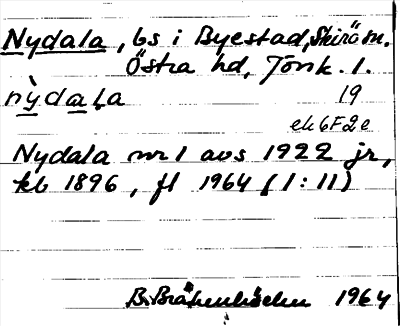 Nydala, bs i Byestad, Skirö sn.
Östra hd, Jönk. l.
nỳdaḷa 19
ek 6F2e
Nydala nr 1 avs 1922 jr,
kb 1896, fl 1964 (1:11)
B. 1964